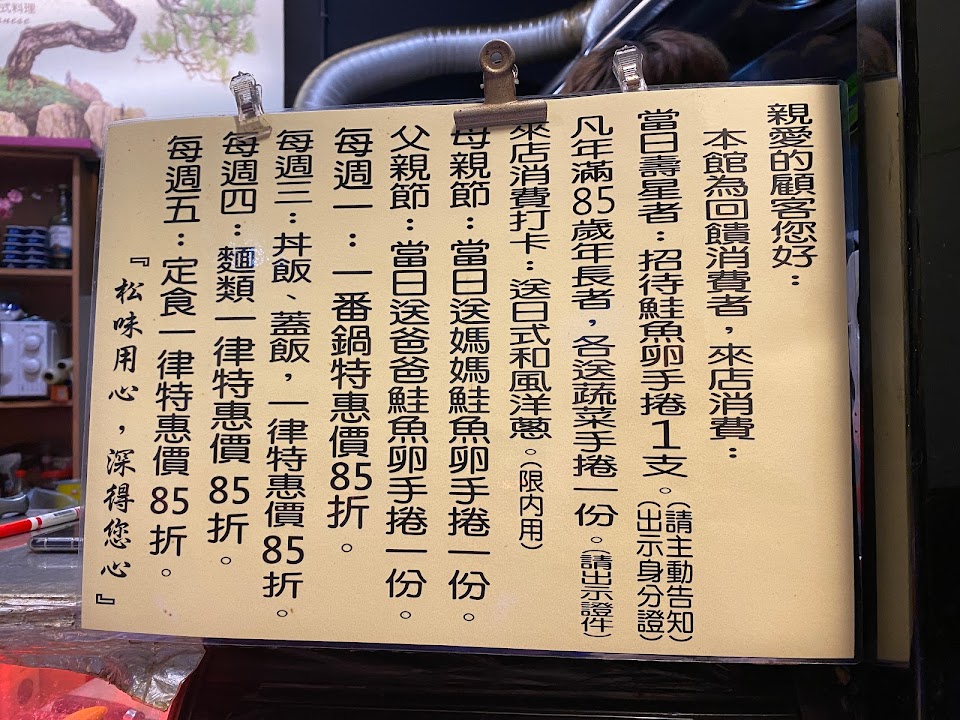 親愛的顧客您好：
本館為回饋消費者，來店消費：
當日壽星者：招待鮭魚卵手捲1支。(請主動告知)(出示身分證)
凡年滿85歲年長者，各送蔬菜手捲一份。(請出示證件)
來店消費打卡：送日式和風洋蔥。(限內用)
母親節：當日送媽媽鮭魚卵手捲一份。
父親節：當日送爸爸鮭魚卵手捲一份。
每週一：一番鍋特惠價85折。
每週三：丼飯、蓋飯，一律特惠價85折。
每週四：麵類一律特惠價85折。
每週五：定食一律特惠價85折。
『松味用心，深得您心』
式料理